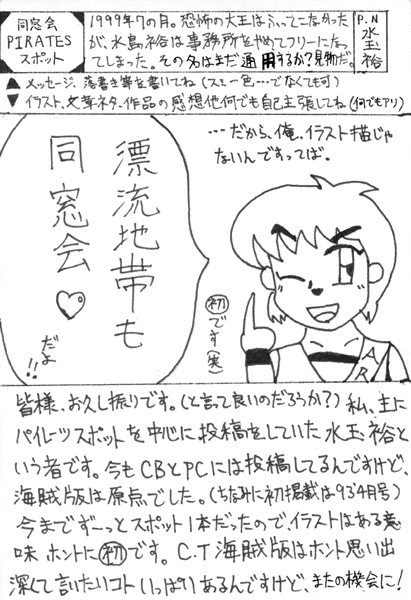 同窓会
PIRATES
スポット
1999年7の月。恐怖の大王はふってこなかった
が、水島裕は事務所をやめてフリーになっ
てしまった。その名はまだ通用するか?見物だ。
P.N
水玉裕
メッセージ、落書き等を書いてね(スミ一色…でなくても可)
イラスト、文章ネタ、作品の感想他何でも自己主張してね(何でもアリ)
…だから、俺、イラスト描じゃ
ないんですってば。
漂流地帯も
同窓会♡
だよ!!
初です(笑)
皆様、お久し振りです。(と言って良いのだろうか?)私、主に
パイレーツスポットを中心に投稿をしていた水玉裕と
いう者です。今もCBとPCには投稿してるんですけど、
海賊版は原点でした。(ちなみに初掲載は93'4月号)
今までずーっとスポット1本だったので、イラストはある意
味ホントに初です。C.T海賊版はホント思い出
深くて言いたいコトいっぱいあるんですけど、またの機会に!